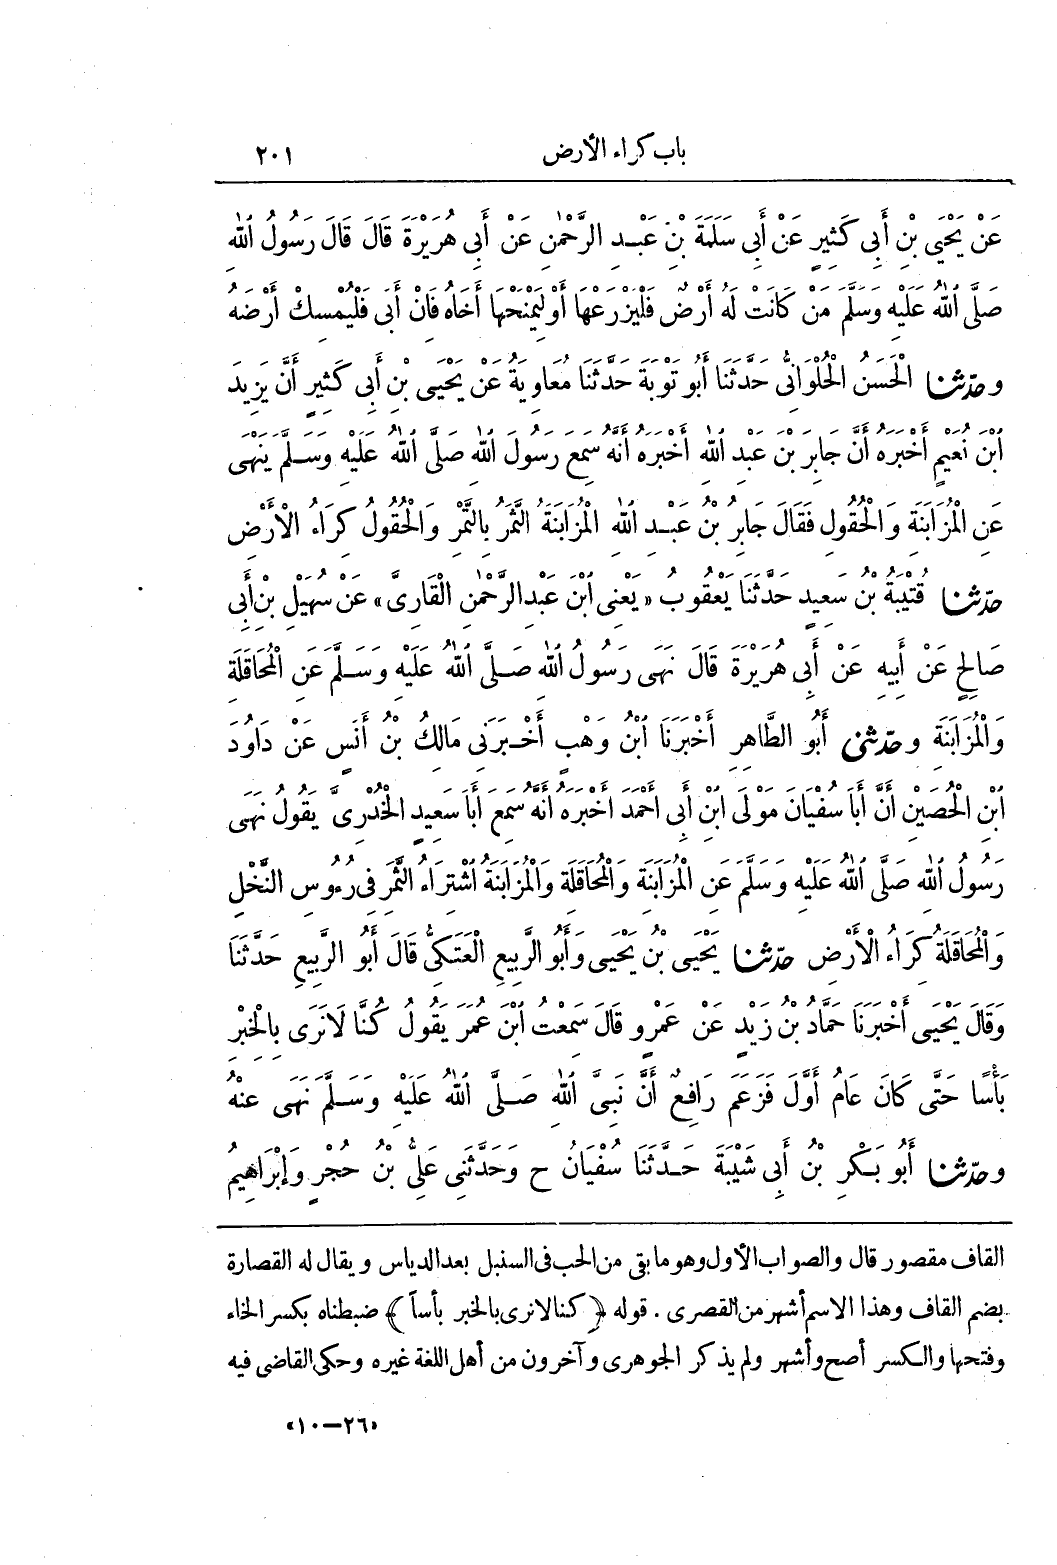 باب كراء الأرض ٢٠١
عَنْ يَحْيَى بْنِ أَبِى كَثِيرٍ عَنْ أَبِى سَلَمَةَ بْنِ عَبْدِ الرَّحْمٰنِ عَنْ أَبِى هُرَيْرَةَ قَالَ قَالَ رَسُولُ اللهِ
صَلَّى اللهُ عَلَيْهِ وَسَلَّمَ مَنْ كَانَتْ لَهُ أَرْضٌ فَلْيَزْرَعْهَا أَوْ لِيَمْنَحْهَا أَخَاهُ فَانْ أَبَى فَلْيُمْسِكْ أَرْضَهُ
وحدّثنا الْحَسَنُ الْحُلْوَانِىُّ حَدَّثَنَا أَبُو تَوْبَةَ حَدَّثَنَا مُعَاوِيَةُ عَنْ يَحْيَى بْنِ أَبِى كَثِيرٍ أَنَّ يَزِيدَ
ابْنَ نُعَيْمٍ أَخْبَرَهُ أَنَّ جَابِرَ بْنَ عَبْدِ اللهِ أَخْبَرَهُ أَنَّهُ سَمِعَ رَسُولَ اللهِ صَلَّى اللهُ عَلَيْهِ وَسَلَّمَ يَنْهَى
عَنِ الْمُزَابَنَةِ وَالْحُقُولِ فَقَالَ جَابِرُ بْنُ عَبْدِ اللهِ الْمُزَابَنَةُ الثَّمَرُ بِالتَّمْرِ وَالْحُقُولُ كِرَاءُ الْأَرْضِ
حدّثنا قُتَيْبَةُ بْنُ سَعِيدٍ حَدَّثَنَا يَعْقُوبُ «يَعْنِى ابْنَ عَبْدِ الرَّحْمٰنِ الْقَارِىَّ» عَنْ سُهَيْلِ بْنِ أَبِى
صَالِحٍ عَنْ أَبِيهِ عَنْ أَبِى هُرَيْرَةَ قَالَ نَهَى رَسُولُ اللهِ صَلَّى اللهُ عَلَيْهِ وَسَلَّمَ عَنِ الْمُحَاقَلَةِ
وَالْمُزَابَنَةِ وحدّثنى أَبُو الطَّاهِرِ أَخْبَرَنَا ابْنُ وَهْبٍ أَخْبَرَنِى مَالِكُ بْنُ أَنَسٍ عَنْ دَاوُدَ
ابْنِ الْحُصَيْنِ أَنَّ أَبَا سُفْيَانَ مَوْلَى ابْنِ أَبِى أَحْمَدَ أَخْبَرَهُ أَنَّهُ سَمِعَ أَبَا سَعِيدٍ الْخُدْرِىَّ يَقُولُ نَهَى
رَسُولُ اللهِ صَلَّى اللهُ عَلَيْهِ وَسَلَّمَ عَنِ الْمُزَابَنَةِ وَالْمُحَاقَلَةِ وَالْمُزَابَنَةُ اشْتِرَاءُ الثَّمَرِ فِى رُءُوسِ النَّخْلِ
وَالْمُحَاقَلَةُ كِرَاءُ الْأَرْضِ حدّثنا يَحْيَى بْنُ يَحْيَى وَأَبُو الرَّبِيعِ الْعَتَكِىُّ قَالَ أَبُو الرَّبِيعِ حَدَّثَنَا
وَقَالَ يَحْيَى أَخْبَرَنَا حَمَّادُ بْنُ زَيْدٍ عَنْ عَمْرٍو قَالَ سَمِعْتُ ابْنَ عُمَرَ يَقُولُ كُنَّا لَا نَرَى بِالْخِبْرِ
بَأْسًا حَتَّى كَانَ عَامُ أَوَّلَ فَزَعَمَ رَافِعٌ أَنَّ نَبِىَّ اللهِ صَلَّى اللهُ عَلَيْهِ وَسَلَّمَ نَهَى عَنْهُ
وحدّثنا أَبُو بَكْرِ بْنُ أَبِى شَيْبَةَ حَدَّثَنَا سُفْيَانُ ح وَحَدَّثَنِى عَلِىُّ بْنُ حُجْرٍ وَإِبْرَاهِيمُ
القاف مقصور قال والصواب الأول وهو ما بقى من الحب فى السنبل بعد الدياس ويقال له القصارة
بضم القاف وهذا الاسم أشهر من القصرى. قوله ﴿كنا لا نرى بالخبر بأساً﴾ ضبطناه بكسر الخاء
وفتحها والكسر أصح وأشهر ولم يذكر الجوهرى وآخرون من أهل اللغة غيره وحكى القاضى فيه
«٢٦-١٠»